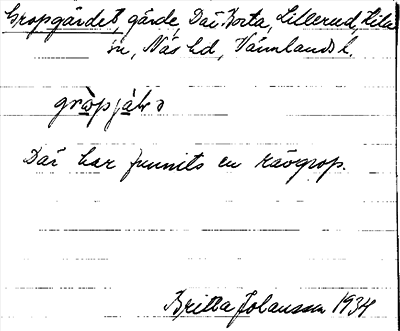 Gropgärdet, gärde, Där Norta, Lillerud, Kila
sn, Näs hd, Värmlands l.
gròpjàḷə
Där har funnits en rävgrop.
Britta Johansson 1934